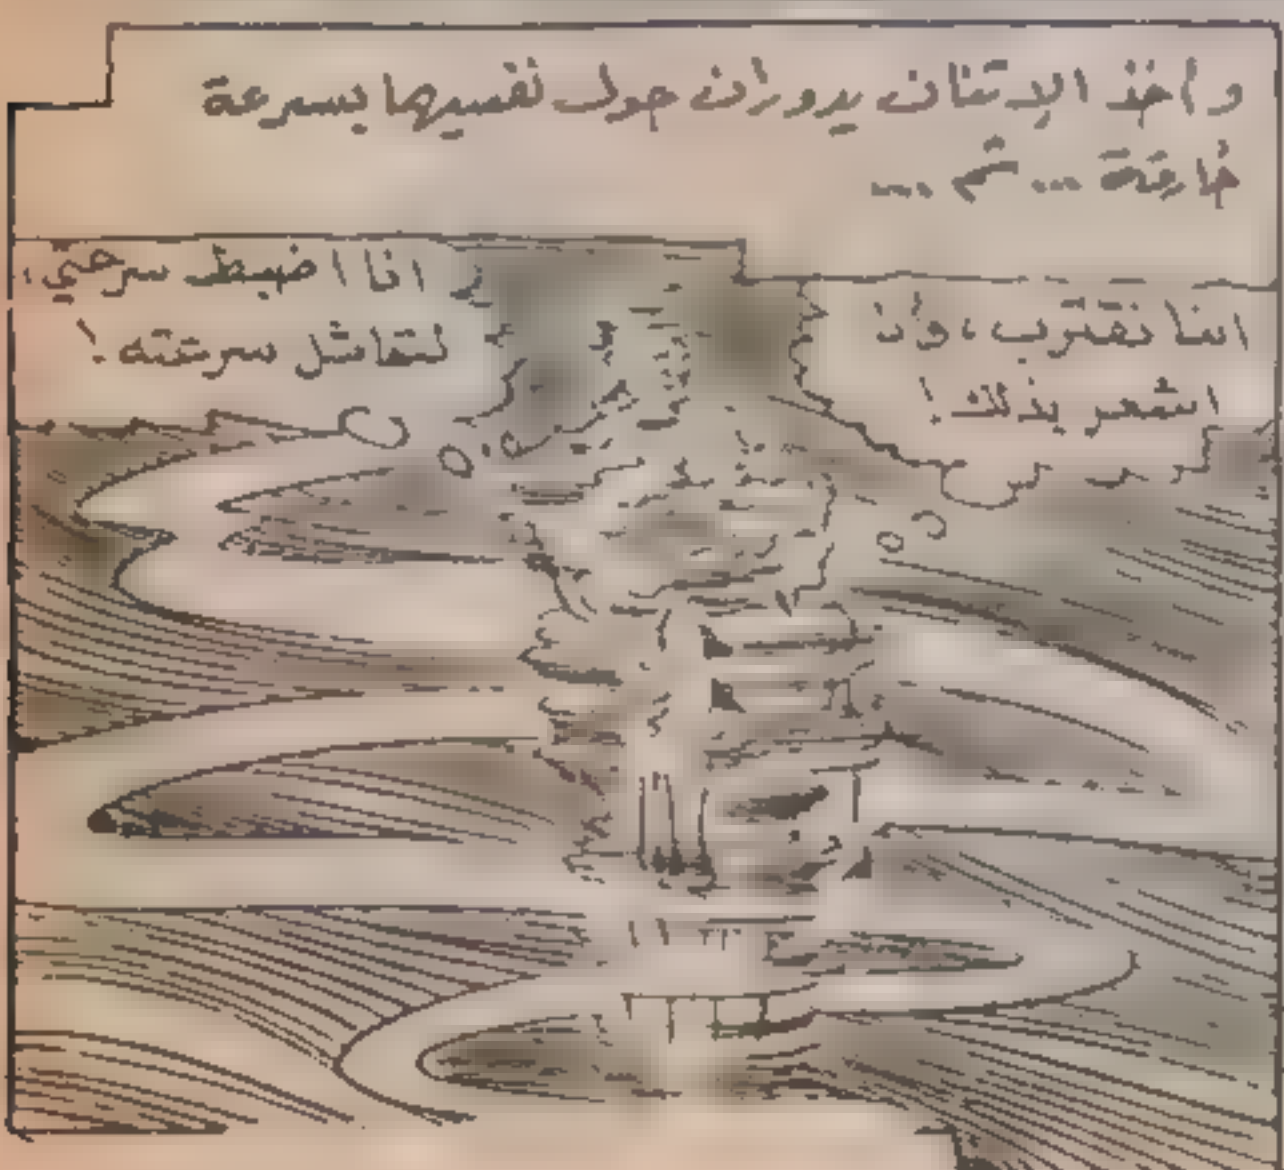 وأخذ الإثنان يدوران حول نفسيهما بسرعة
خارقة ... ثم ...
إننا نقترب ، وأنا
اشعر بذلك !
انا اضبط سرعتي ،
لتماثل سرعته !